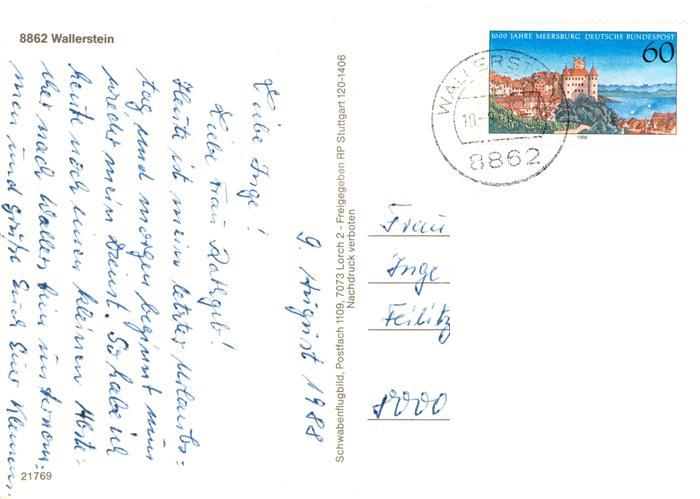 8862 Wallerstein
9. August 1988
Liebe Inge!
Liebe Frau Rathgeb!
Heute ist mein letzter Urlaubs=
tag, und morgen beginnt nun
wieder mein Dienst. So habe ich
heute noch einen kleinen Abste=
cher nach Wallerstein unternom=
men und grüße Euch Euer Klemens
21769
Schwabenflugbild, Postfach 1109, 7073 Lorch 2 - Freigegeben RP Stuttgart 120-1406
Nachdruck verboten
1000 JAHRE MEERSBURG DEUTSCHE BUNDESPOST
60
1988
WALLERST
10.-
8862
Frau
Inge
Feilitz
8000